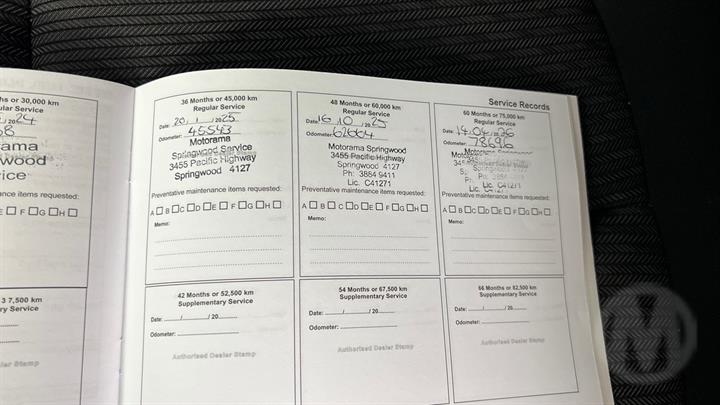 Service Records
hs or 30,000 km
ular Service
ama
wood
ice
nce items requested:
E □ F □G □H □
36 Months or 45,000 km
Regular Service
Date: 20 / 1 / 2025
Odometer: 45543
Motorama
Springwood Service
3455 Pacific Highway
Springwood 4127
Preventative maintenance items requested:
A □ B □C □D □E □ F □G □H □
Memo:
48 Months or 60,000 km
Regular Service
Date: 16 / 10 / 2025
Odometer: 62664
Motorama Springwood
3455 Pacific Highway
Springwood 4127
Ph: 3884 9411
Lic. C41271
Preventative maintenance items requested:
A □ B □ C □D □E □ F □G □H □
Memo:
60 Months or 75,000 km
Regular Service
Date: 14 / 04 / 2026
Odometer: 78696
Lic. C41271
Preventative maintenance items requested:
A □ B □C □D □E □ F □G □H □
Memo:
3 7,500 km
ry Service
ler Stamp
42 Months or 52,500 km
Supplementary Service
Date: / / 20
Odometer:
Authorised Dealer Stamp
54 Months or 67,500 km
Supplementary Service
Date: / / 20
Odometer:
Authorised Dealer Stamp
66 Months or 82,500 km
Supplementary Service
Date: / / 20
Odometer:
Authorised Dealer Stamp
M